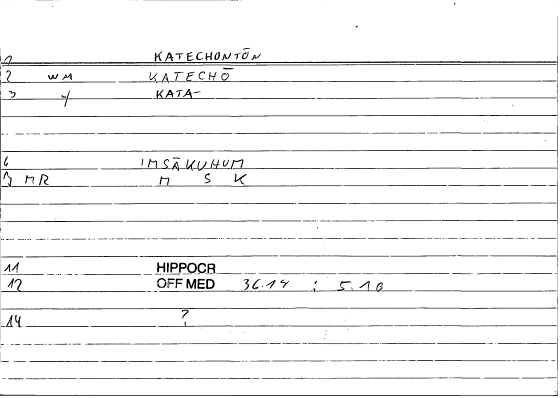 1 KATECHONTŌN
2 WM KATECHŌ
3 Y KATA-
6 IMSĀKUHUM
7 MR M S K
11 HIPPOCR
12 OFF MED 36.14 : 5.10
14 ?